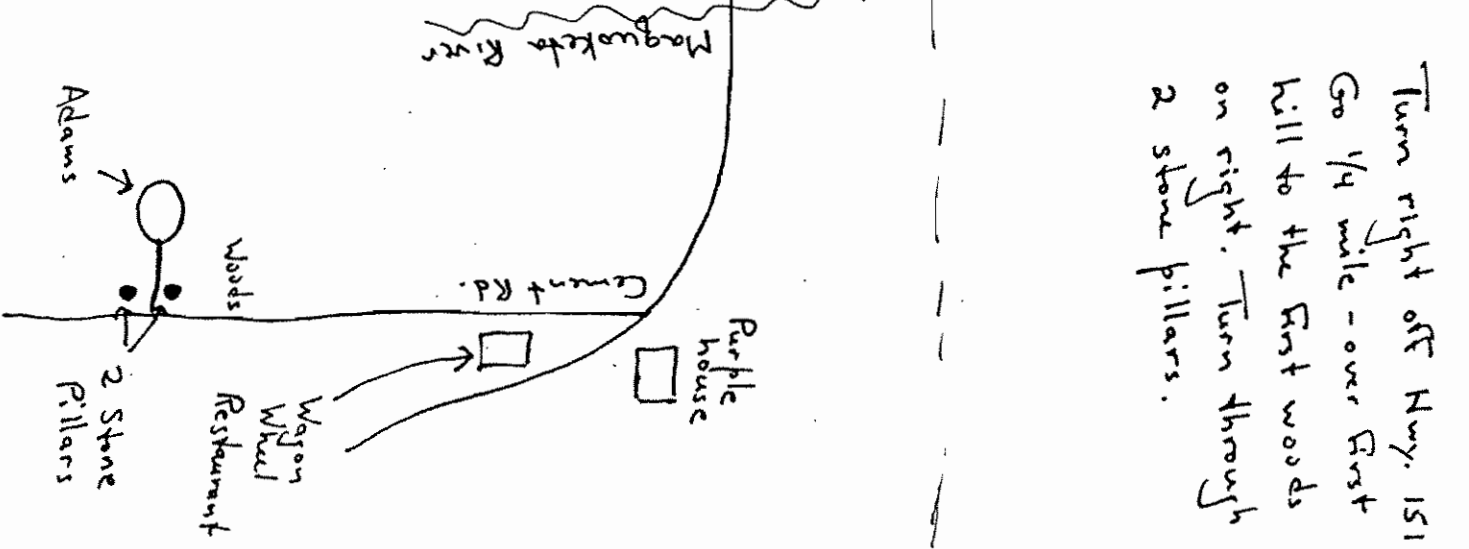 Turn right off Hwy. 151
Go 1/4 mile - over first
hill to the first woods
on right. Turn through
2 stone pillars.
Maquoketa River
Cement Rd.
Purple
house
Wagon
Wheel
Restaurant
Woods
Adams
2 Stone
Pillars